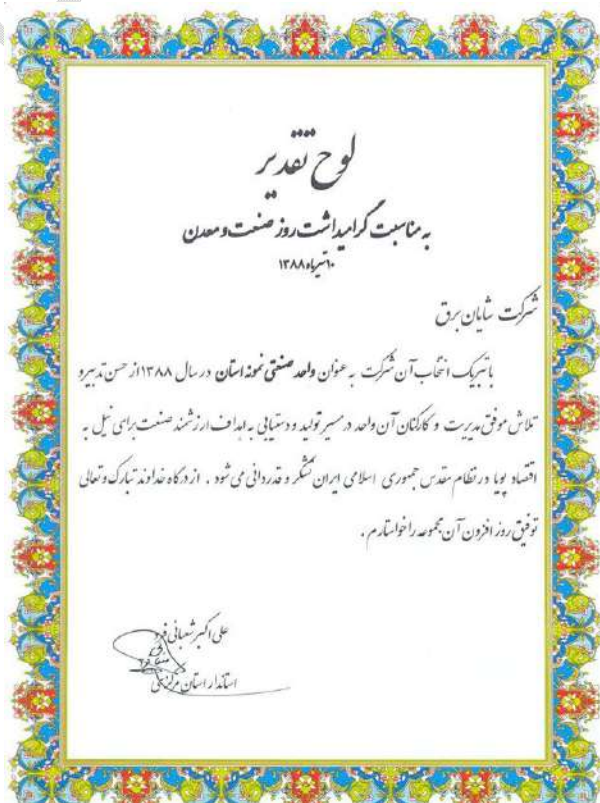 لوح تقدیر
به مناسبت گرامیداشت روز صنعت و معدن
۱۰ تیرماه ۱۳۸۸
شرکت شایان برق
با تبریک انتخاب آن شرکت به عنوان واحد صنعتی نمونه استان در سال ۱۳۸۸ از حسن تدبیر و
تلاش موفق مدیریت و کارکنان آن واحد در مسیر تولید و دستیابی به اهداف ارزشمند صنعت برای نیل به
اقتصاد پویا در نظام مقدس جمهوری اسلامی ایران تشکر و قدردانی می شود . از درگاه خداوند تبارک و تعالی
توفیق روز افزون آن مجموعه را خواستارم .
علی اکبر شعبانی فرد
استاندار استان مرکزی